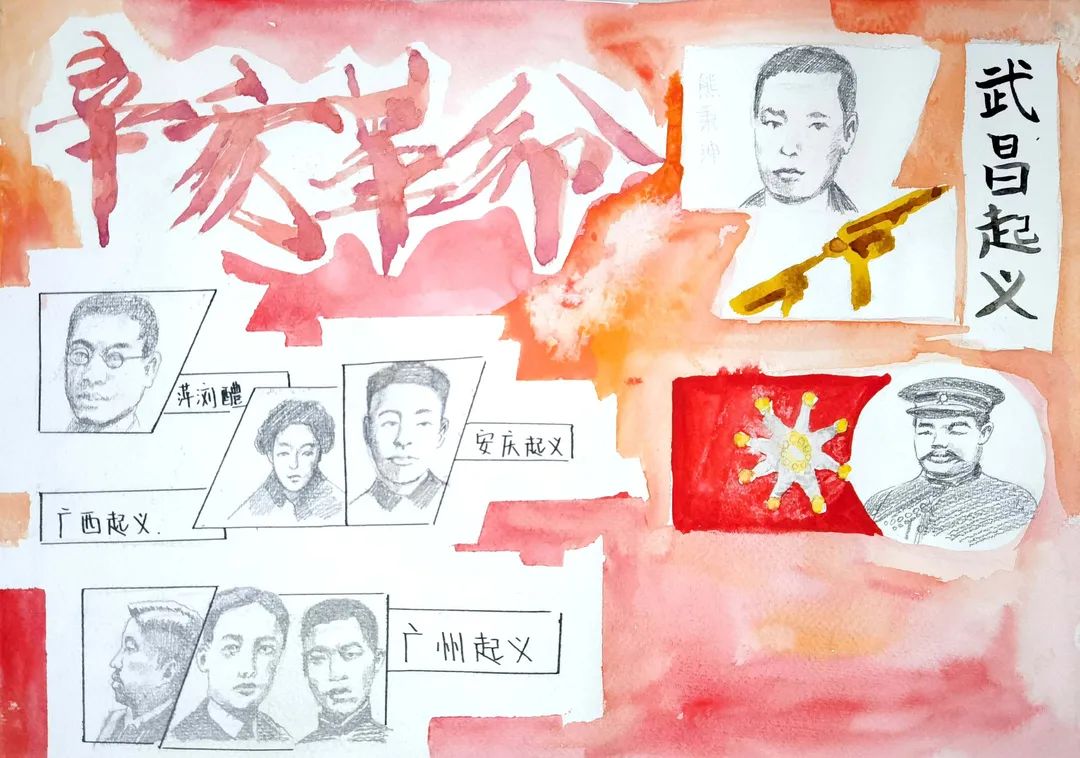 辛亥革命
熊秉坤
武昌起义
萍浏醴
安庆起义
广西起义.
广州起义